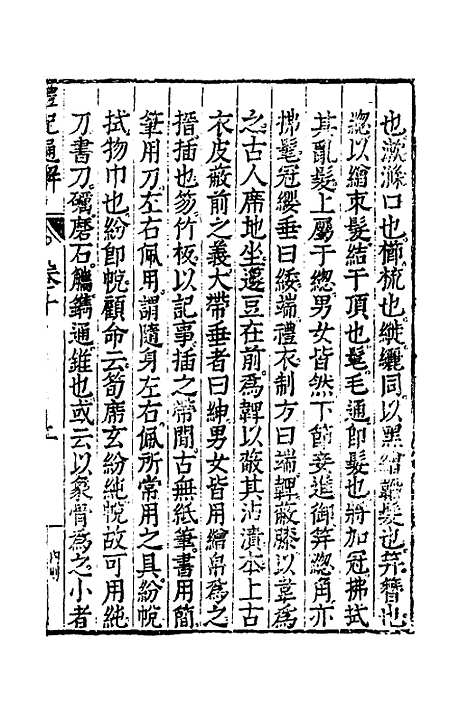 也漱滌口也櫛梳也縰纚同以黑繒韜髮也笄簪也
總以繒束髮結于頂也髦毛通即髮也將加冠拂拭
其亂髮上屬于總男女皆然下節妾進御笄總角亦
拂髦冠纓垂曰緌端禮衣制方曰端韠蔽膝以韋為
之古人席地坐籩豆在前為韠以蔽其沾瀆本上古
衣皮蔽前之義大帶垂者曰紳男女皆用繒帛為之
搢插也笏竹板以記事插之帶間古無紙筆書用簡
筆用刀左右佩用謂隨身左右佩所常用之具紛帨
拭物巾也紛即帨顧命云筍席玄紛純帨故可用純
刀書刀礪磨石觿鐫通錐也或云以象骨為之小者
禮記通解
卷十
內則